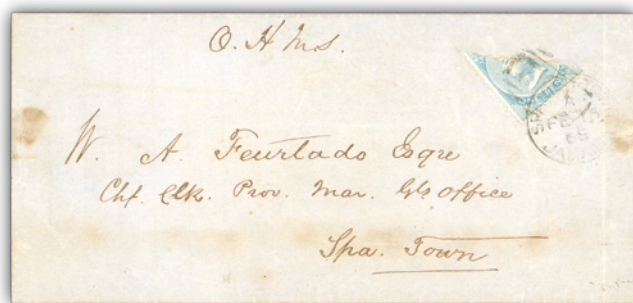 O. H M S.
W. A Feurtado Esqre
Chf. Clk. Prov. Mar. Gls Office
Spa. Town
A
FE
JAMAI